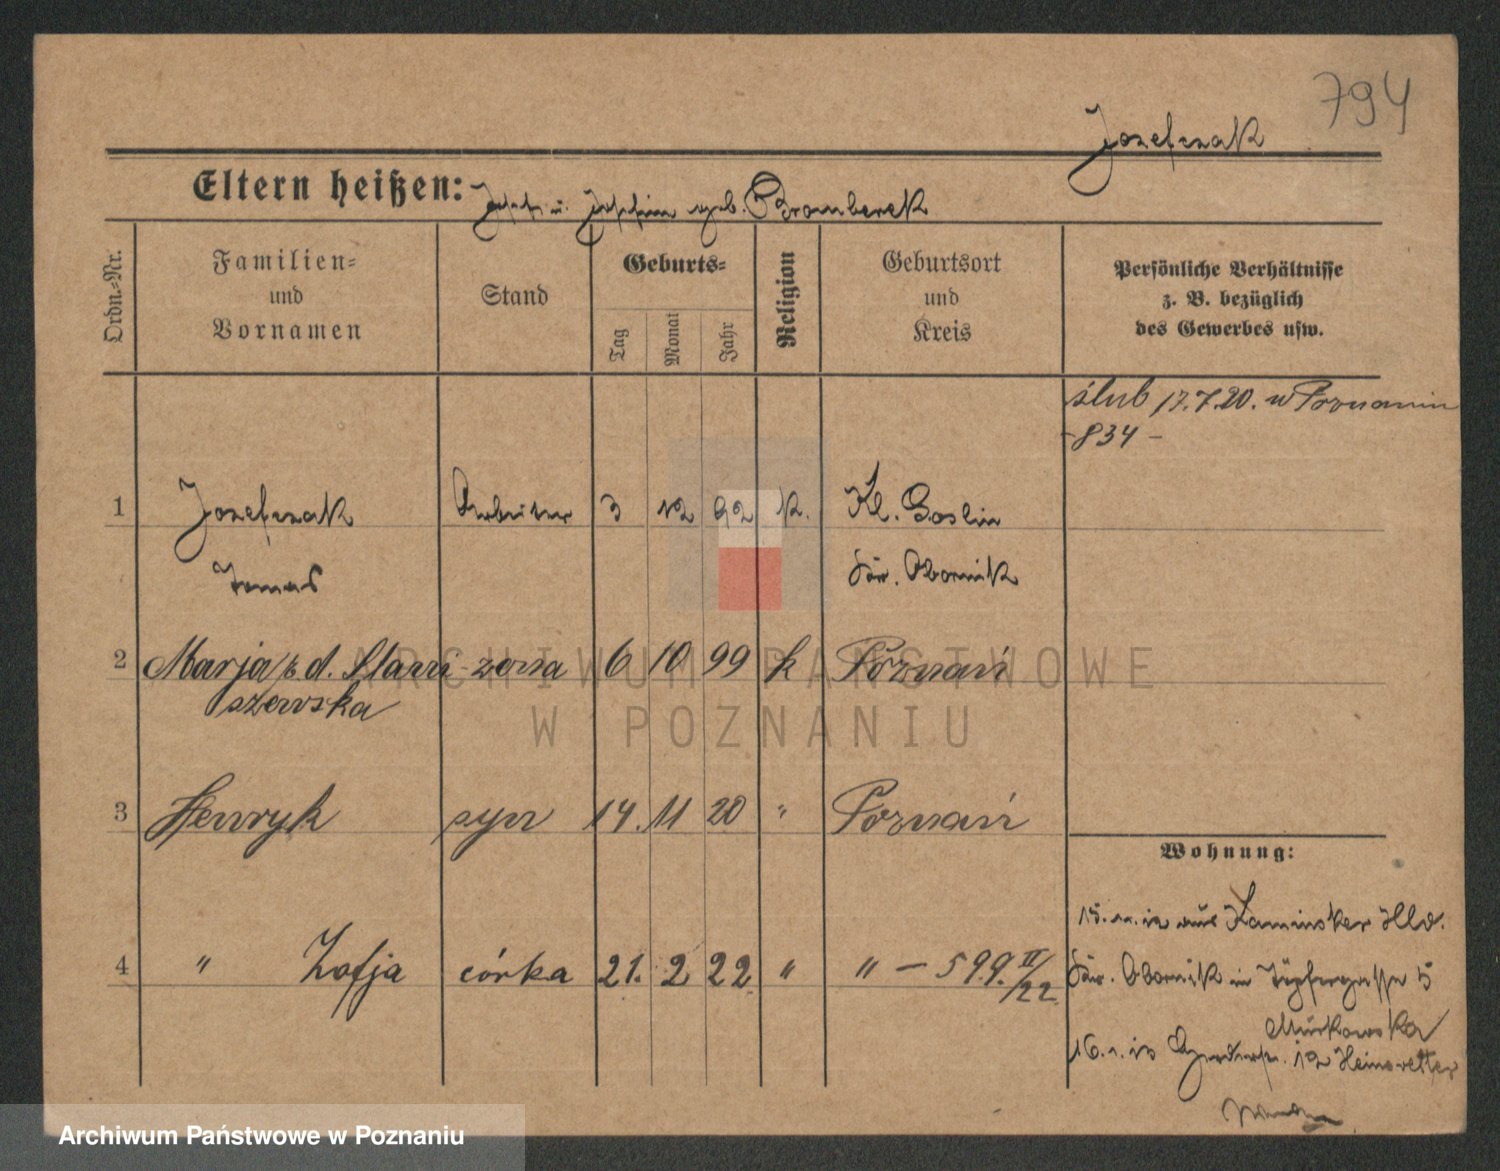 794
Jozefczak
Eltern heißen: Josef u. Josefine geb. Bromberek
Ordn.-Nr.
Familien-
und
Vornamen
Stand
Geburts-
Tag
Monat
Jahr
Religion
Geburtsort
und
Kreis
Persönliche Verhältnisse
z. B. bezüglich
des Gewerbes usw.
ślub 17.7.20. w Poznaniu
-834-
1 Jozefczak Arbeiter 3 12 92 k. Kl. Goslin
Tomas Kr. Obornik
2 Marja z d. Stani- żona 6 10 99 k Poznań
szewska
3 Henryk syn 14. 11 20 " Poznań
Wohnung:
15. 11. 12 aus Kaminsker Hld.
4 " Zofja córka 21. 2 22 " " - 599 II/22
Kr. Obornik in Töpfergasse 5
Murkowska
16. 1. 13 12
ARCHIWUM PAŃSTWOWE
W POZNANIU
Archiwum Państwowe w Poznaniu